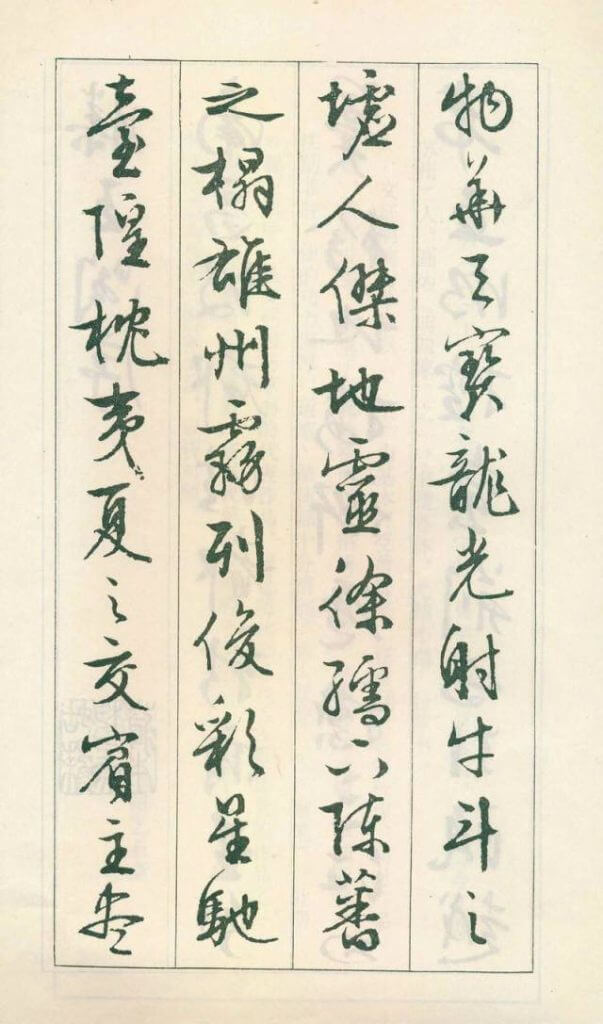 物華天寶龍光射牛斗之
墟人傑地靈徐孺下陳蕃
之榻雄州霧列俊彩星馳
臺隍枕夷夏之交賓主盡